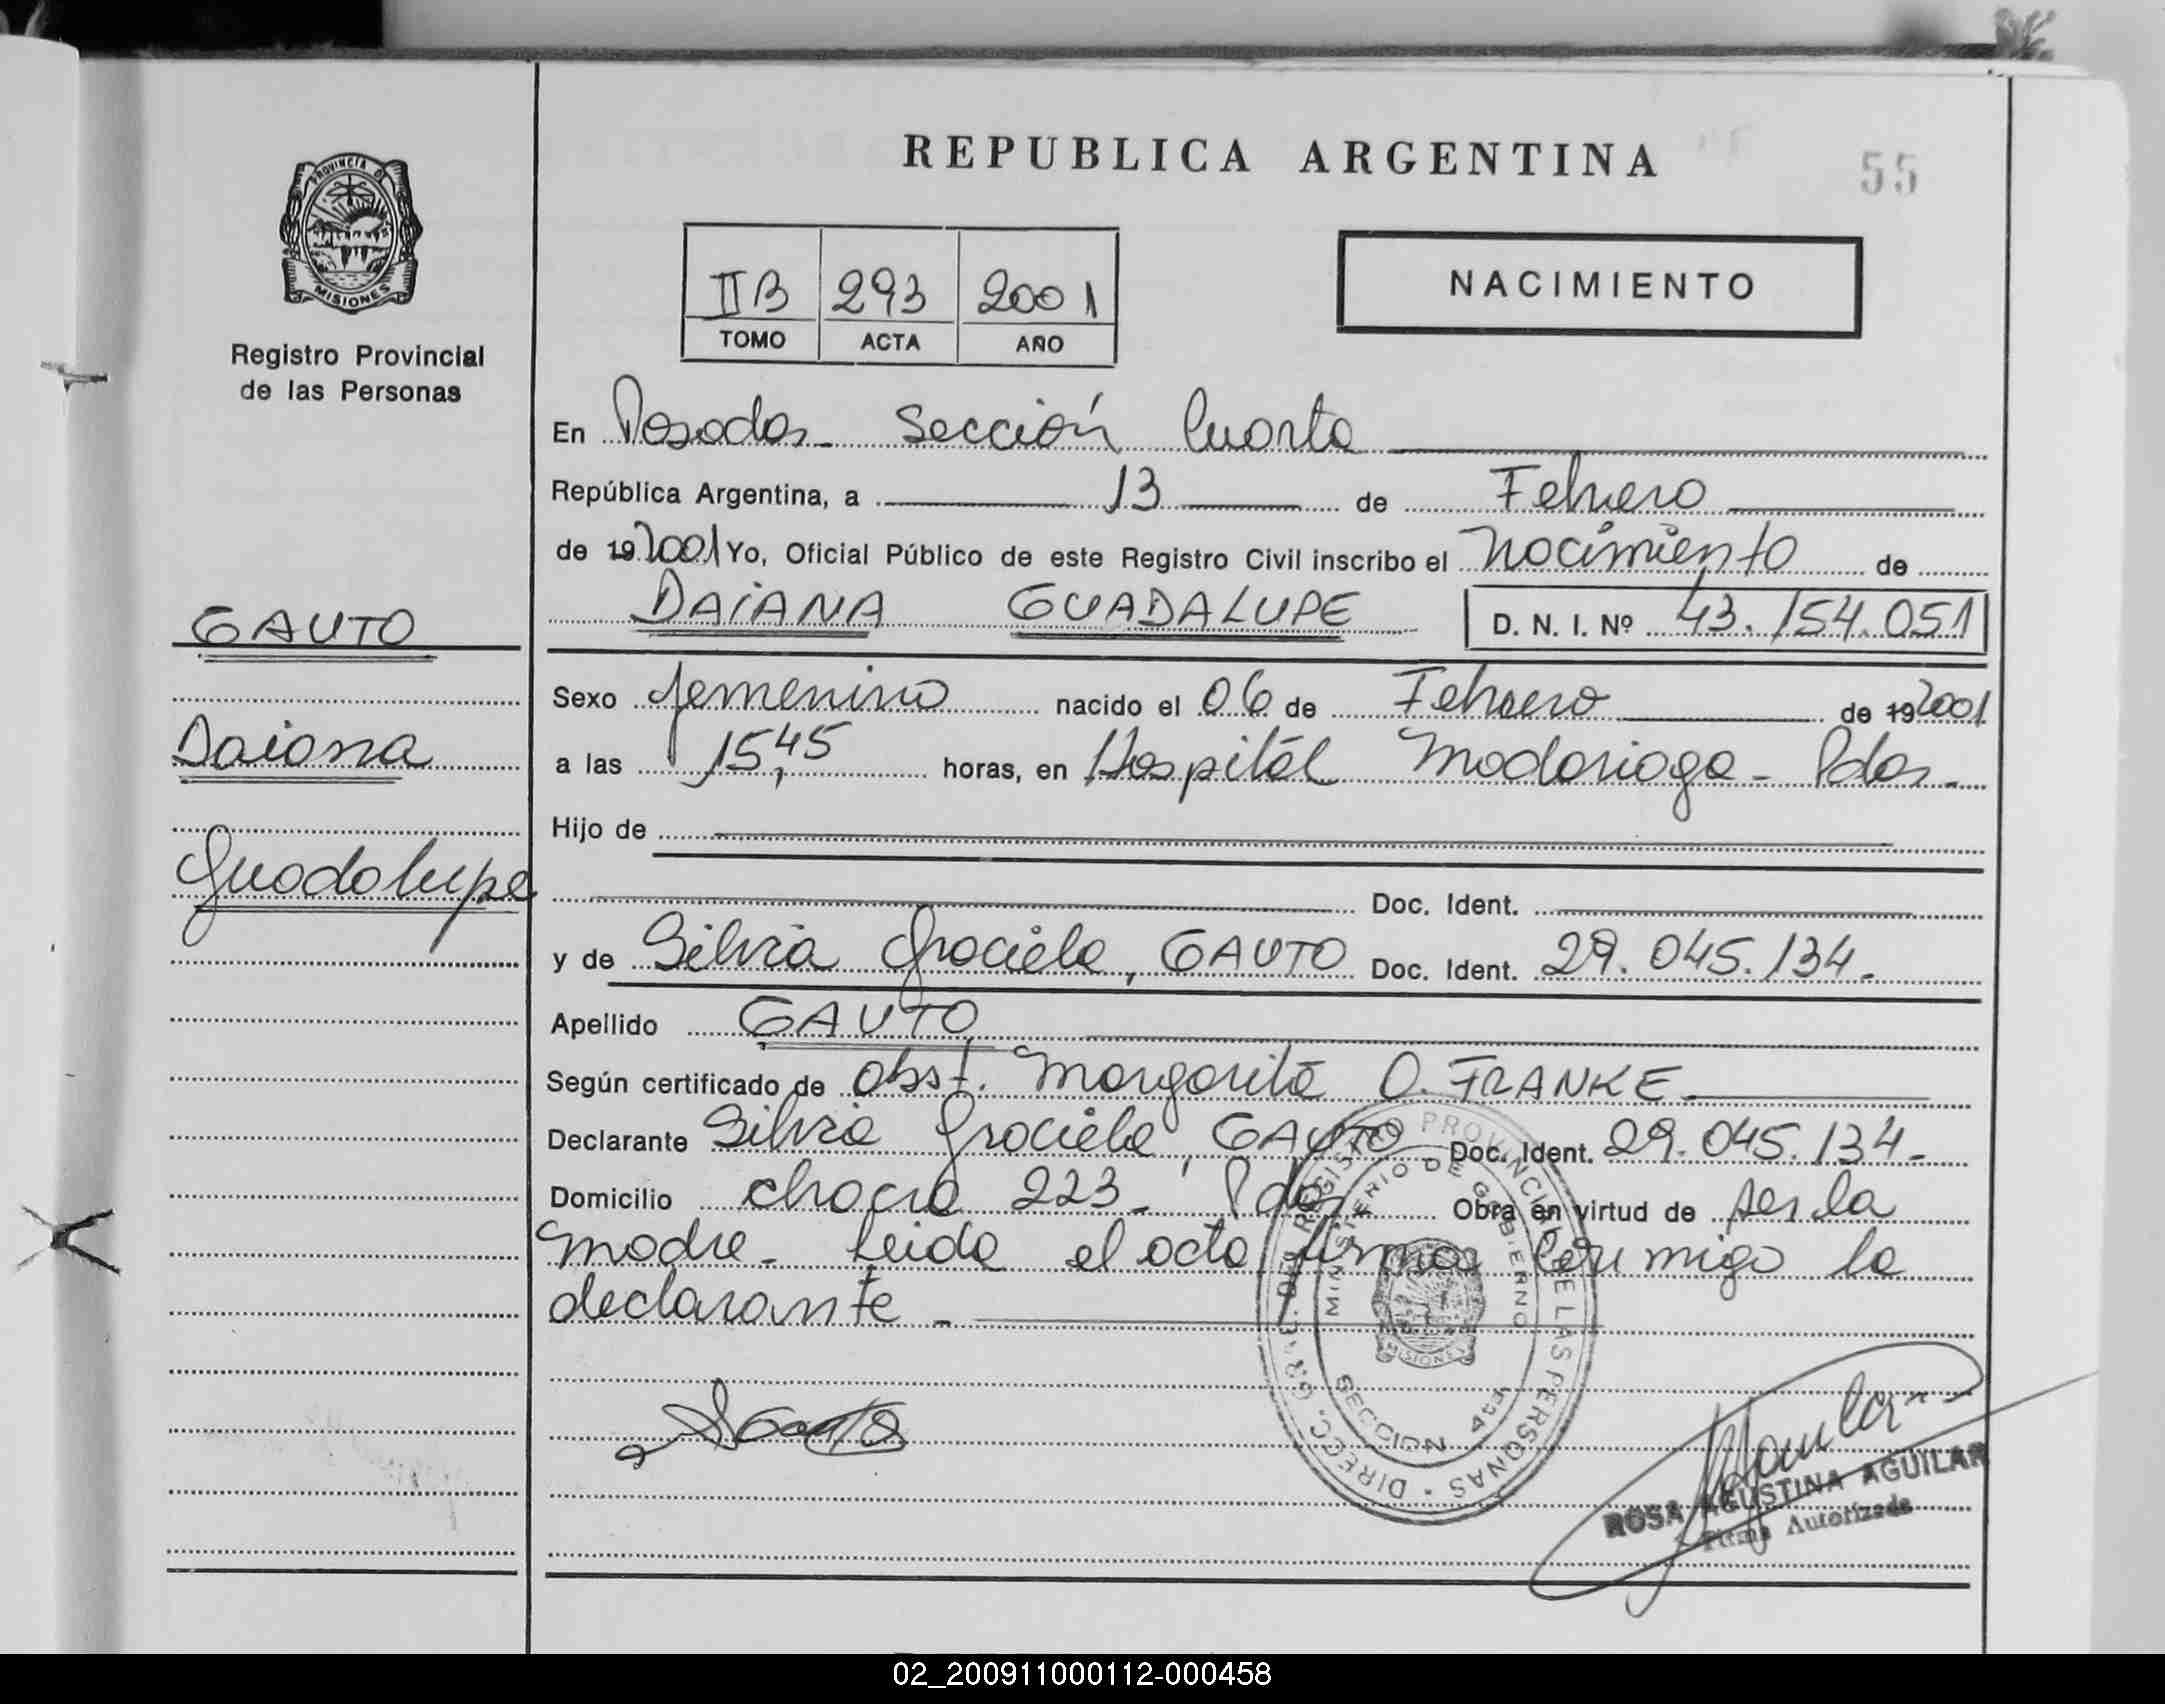 REPUBLICA ARGENTINA
55
PROVINCIA DE
MISIONES
Registro Provincial
de las Personas
IIB 293 2001
TOMO ACTA AÑO
NACIMIENTO
En Posadas - Sección Cuarta
República Argentina, a 13 de Febrero
de 19 2001 Yo, Oficial Público de este Registro Civil inscribo el Nacimiento de
DAIANA GUADALUPE D. N. I. Nº 43.154.051
GAUTO
Daiana
Guadalupe
Sexo femenino nacido el 06 de Febrero de 19 2001
a las 15,45 horas, en Hospital Madariaga - Pdas -
Hijo de
Doc. Ident.
y de Silvia Graciela, GAUTO Doc. Ident. 29.045.134.-
Apellido GAUTO
Según certificado de Obst. Margarita O. FRANKE -
Declarante Silvia Graciela, GAUTO Doc. Ident. 29.045.134.-
Domicilio chacra 223 - Pdas Obra en virtud de ser la
madre - Leida el acta firma conmigo la
declarante -
DIRECC. GRAL. DEL REGISTRO PROVINCIAL DE LAS PERSONAS
MINISTERIO DE GOBIERNO
SECCION 4ta
MISIONES
Gauto
Aguilar
ROSA AGUSTINA AGUILAR
Firma Autorizada
02_200911000112-000458